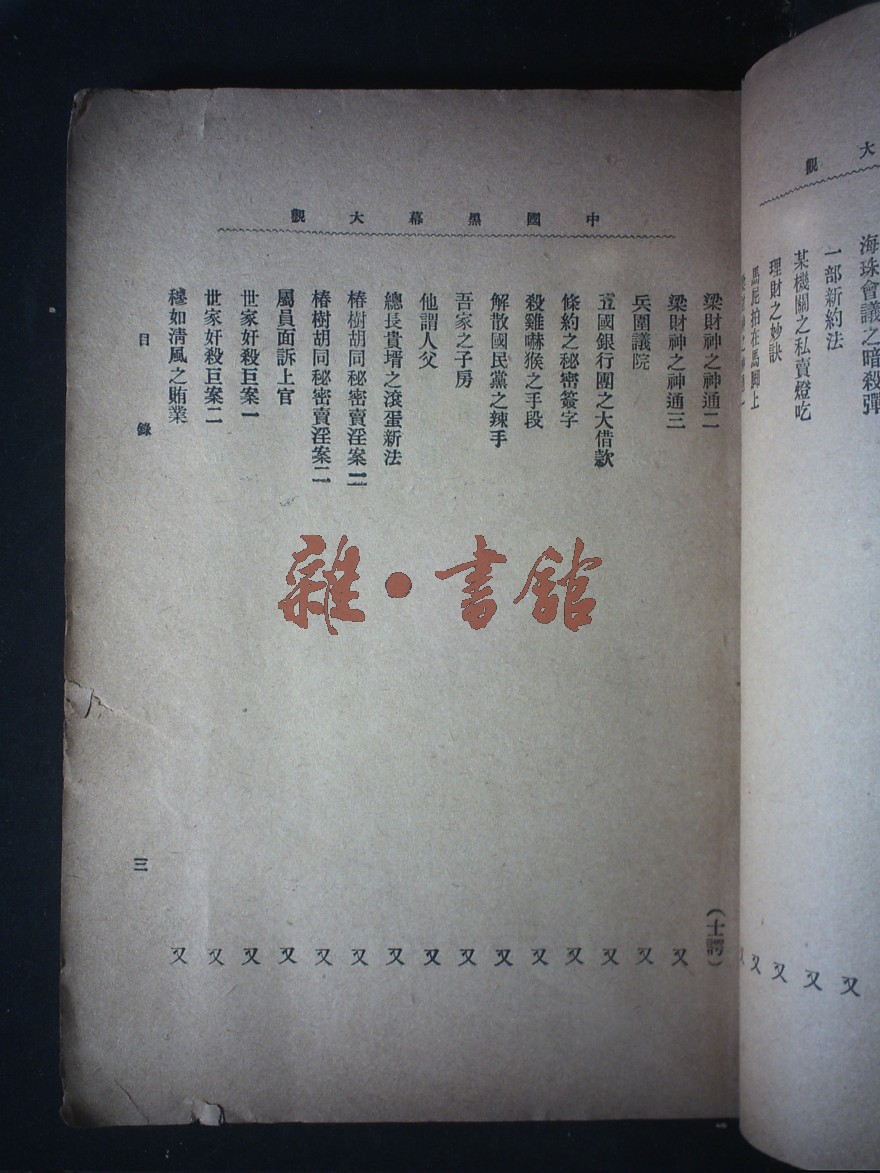 大觀
海珠會議之暗殺彈
一部新約法 又
某機關之私賣燈吃 又
理財之妙訣 又
馬屁拍在馬脚上 又
中國黑幕大觀
梁財神之神通二 (士諤)
梁財神之神通三 又
兵圍議院 又
五國銀行團之大借款 又
條約之秘密簽字 又
殺雞嚇猴之手段 又
解散國民黨之辣手 又
吾家之子房 又
他謂人父 又
總長貴壻之滾蛋新法 又
椿樹胡同秘密賣淫案一 又
椿樹胡同秘密賣淫案二 又
屬員面訴上官 又
世家奸殺巨案一 又
世家奸殺巨案二 又
穆如淸風之賄業 又
目錄 三
雜·書館